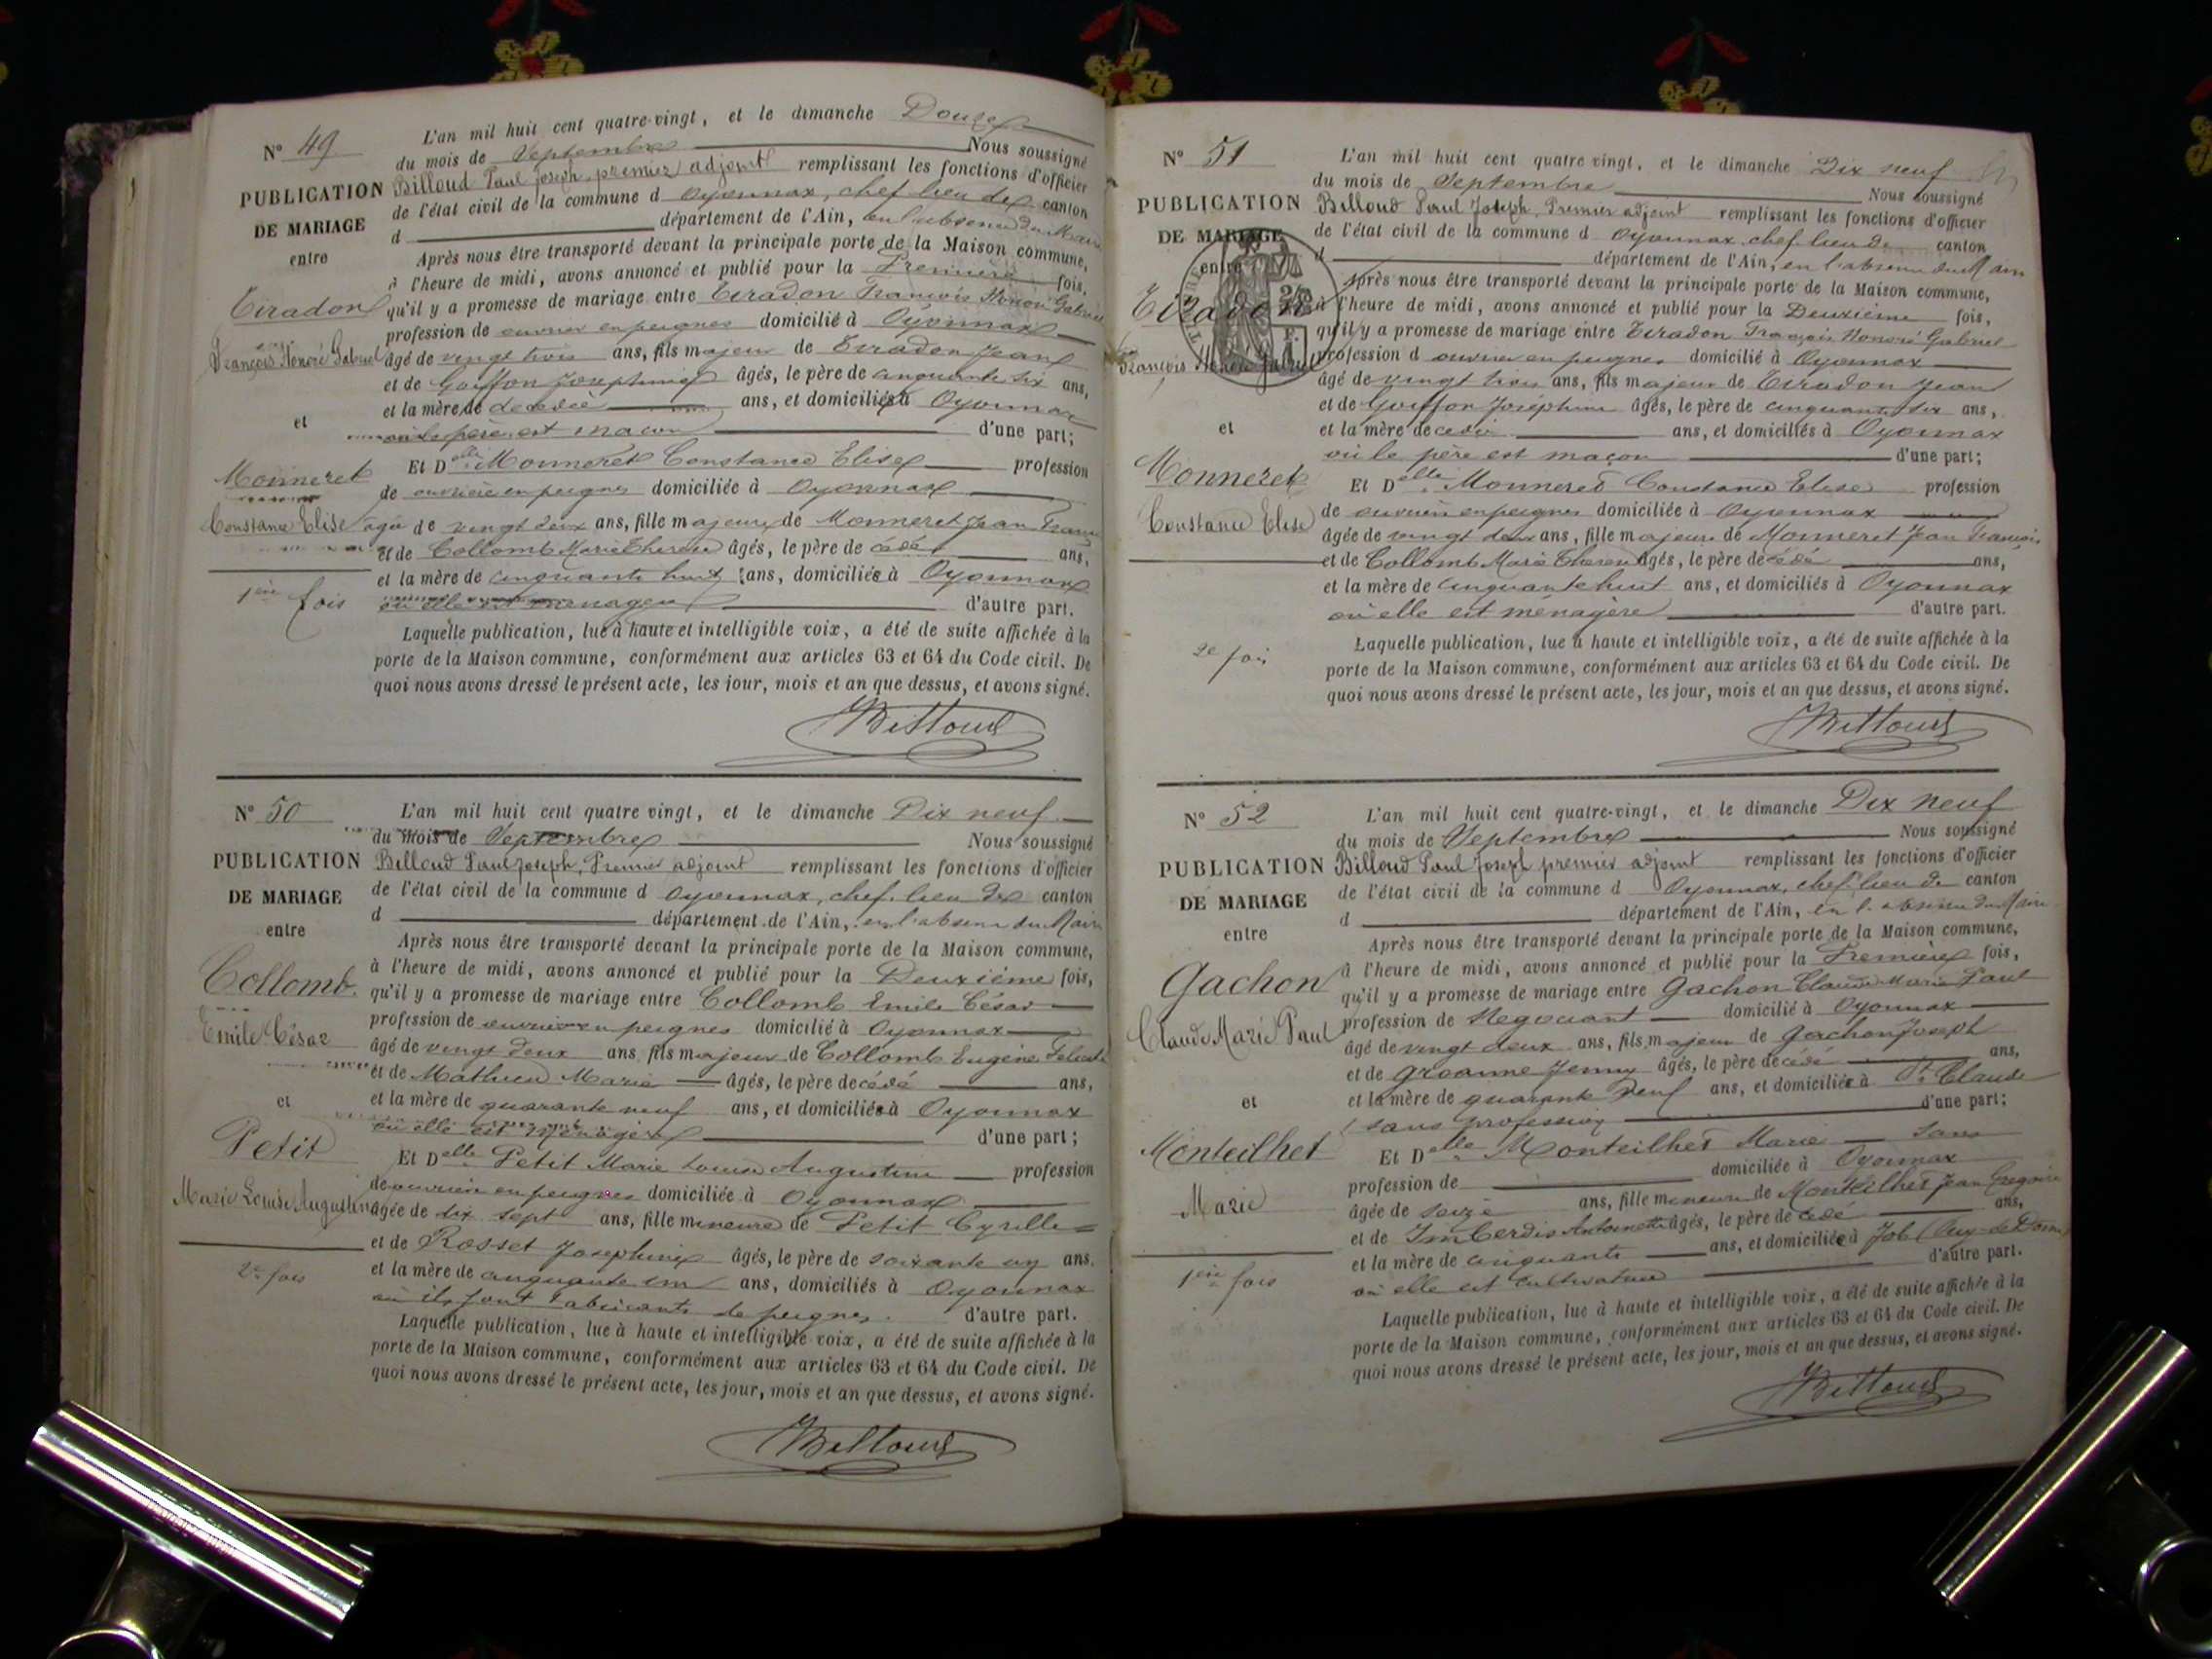 N° 49
PUBLICATION
DE MARIAGE
entre
Tiradon
François Honoré Gabriel
et
Monneret
Constance Elise
1ère fois
L'an mil huit cent quatre-vingt, et le dimanche Douze
du mois de Septembre Nous soussigné
Billoud Paul Joseph, premier adjoint remplissant les fonctions d'officier
de l'état civil de la commune d Oyonnax, chef lieu de canton
d département de l'Ain, en l'absence du Maire
Après nous être transporté devant la principale porte de la Maison commune,
à l'heure de midi, avons annoncé et publié pour la Première fois,
qu'il y a promesse de mariage entre Tiradon François Honoré Gabriel
profession de ouvrier en peignes domicilié à Oyonnax
âgé de vingt trois ans, fils majeur de Tiradon Jean
et de Goiffon Josephine âgés, le père de cinquante six ans,
et la mère de decedée ans, et domiciliés à Oyonnax
où le père est maçon d'une part;
Et Delle Monneret Constance Elise profession
de ouvrière en peignes domiciliée à Oyonnax
agée de vingt deux ans, fille majeure de Monneret Jean Franc
et de Collomb Marie Therese âgés, le père de cédé ans,
et la mère de cinquante huit ans, domiciliés à Oyonnax
où elle est ménagère d'autre part.
Laquelle publication, lue à haute et intelligible voix, a été de suite affichée à la
porte de la Maison commune, conformément aux articles 63 et 64 du Code civil. De
quoi nous avons dressé le présent acte, les jour, mois et an que dessus, et avons signé.
Billoud
N° 50
PUBLICATION
DE MARIAGE
entre
Collomb
Emile César
et
Petit
Marie Louise Augustine
2e fois
L'an mil huit cent quatre vingt, et le dimanche Dix neuf
du mois de Septembre Nous soussigné
Billoud Paul Joseph, Premier adjoint remplissant les fonctions d'officier
de l'état civil de la commune d Oyonnax, chef lieu de canton
d département de l'Ain, en l'absence du Maire
Après nous être transporté devant la principale porte de la Maison commune,
à l'heure de midi, avons annoncé et publié pour la Deuxième fois,
qu'il y a promesse de mariage entre Collomb Emile César
profession de ouvrier en peignes domicilié à Oyonnax
âgé de vingt deux ans fils majeur de Collomb Eugène
et de Mathieu Marie âgés, le père de cédé ans,
et la mère de quarante neuf ans, et domiciliés à Oyonnax
où elle est ménagère d'une part;
Et Delle Petit Marie Louise Augustine profession
de ouvrière en peignes domiciliée à Oyonnax
agée de dix sept ans, fille mineure de Petit Cyrille
et de Rosset Josephine âgés, le père de soixante un ans,
et la mère de cinquante un ans, domiciliés à Oyonnax
où ils sont fabricants de peignes. d'autre part.
Laquelle publication, lue à haute et intelligible voix, a été de suite affichée à la
porte de la Maison commune, conformément aux articles 63 et 64 du Code civil. De
quoi nous avons dressé le présent acte, les jour, mois et an que dessus, et avons signé.
Billoud
N° 51
PUBLICATION
DE MARIAGE
entre
Tiradon
François Honoré Gabriel
et
Monneret
Constance Elise
2e fois
L'an mil huit cent quatre vingt, et le dimanche Dix neuf
du mois de Septembre Nous soussigné
Billoud Paul Joseph, Premier adjoint remplissant les fonctions d'officier
de l'état civil de la commune d Oyonnax chef lieu de canton
d département de l'Ain, en l'absence du Maire
Après nous être transporté devant la principale porte de la Maison commune,
à l'heure de midi, avons annoncé et publié pour la Deuxième fois,
qu'il y a promesse de mariage entre Tiradon François Honoré Gabriel
profession d ouvrier en peignes domicilié à Oyonnax
âgé de vingt trois ans, fils majeur de Tiradon Jean
et de Goiffon Joséphine âgés, le père de cinquante six ans,
et la mère decedée ans, et domiciliés à Oyonnax
où le père est maçon d'une part;
Et Delle Monneret Constance Elise profession
de ouvrière en peignes domiciliée à Oyonnax
âgée de vingt deux ans, fille majeure de Monneret Jean François
et de Collomb Marie Therese âgés, le père de cédé ans,
et la mère de cinquante huit ans, et domiciliés à Oyonnax
où elle est ménagère d'autre part.
Laquelle publication, lue à haute et intelligible voix, a été de suite affichée à la
porte de la Maison commune, conformément aux articles 63 et 64 du Code civil. De
quoi nous avons dressé le présent acte, les jour, mois et an que dessus, et avons signé.
Billoud
N° 52
PUBLICATION
DE MARIAGE
entre
Gachon
Claude Marie Paul
et
Monteilhet
Marie
1ère fois
L'an mil huit cent quatre-vingt, et le dimanche Dix neuf
du mois de Septembre Nous soussigné
Billoud Paul Joseph premier adjoint remplissant les fonctions d'officier
de l'état civil de la commune d Oyonnax, chef lieu de canton
d département de l'Ain, en l'absence du Maire
Après nous être transporté devant la principale porte de la Maison commune,
à l'heure de midi, avons annoncé et publié pour la Première fois,
qu'il y a promesse de mariage entre Gachon Claude Marie Paul
profession de Negociant domicilié à Oyonnax
âgé de vingt deux ans, fils majeur de Gachon Joseph
et de Jenny âgés, le père de cédé ans,
et la mère de quarante neuf ans, et domiciliés à St Claude
sans profession d'une part;
Et Delle Monteilhet Marie sans
profession de domiciliée à Oyonnax
âgée de seize ans, fille mineure de Monteilhet Jean Gregoire
et de Imberdis Antoinette âgés, le père de cedé ans,
et la mère de cinquante ans, et domiciliée à Job (Puy-de-Dome)
où elle est cultivatrice d'autre part.
Laquelle publication, lue à haute et intelligible voix, a été de suite affichée à la
porte de la Maison commune, conformément aux articles 63 et 64 du Code civil. De
quoi nous avons dressé le présent acte, les jour, mois et an que dessus, et avons signé.
Billoud